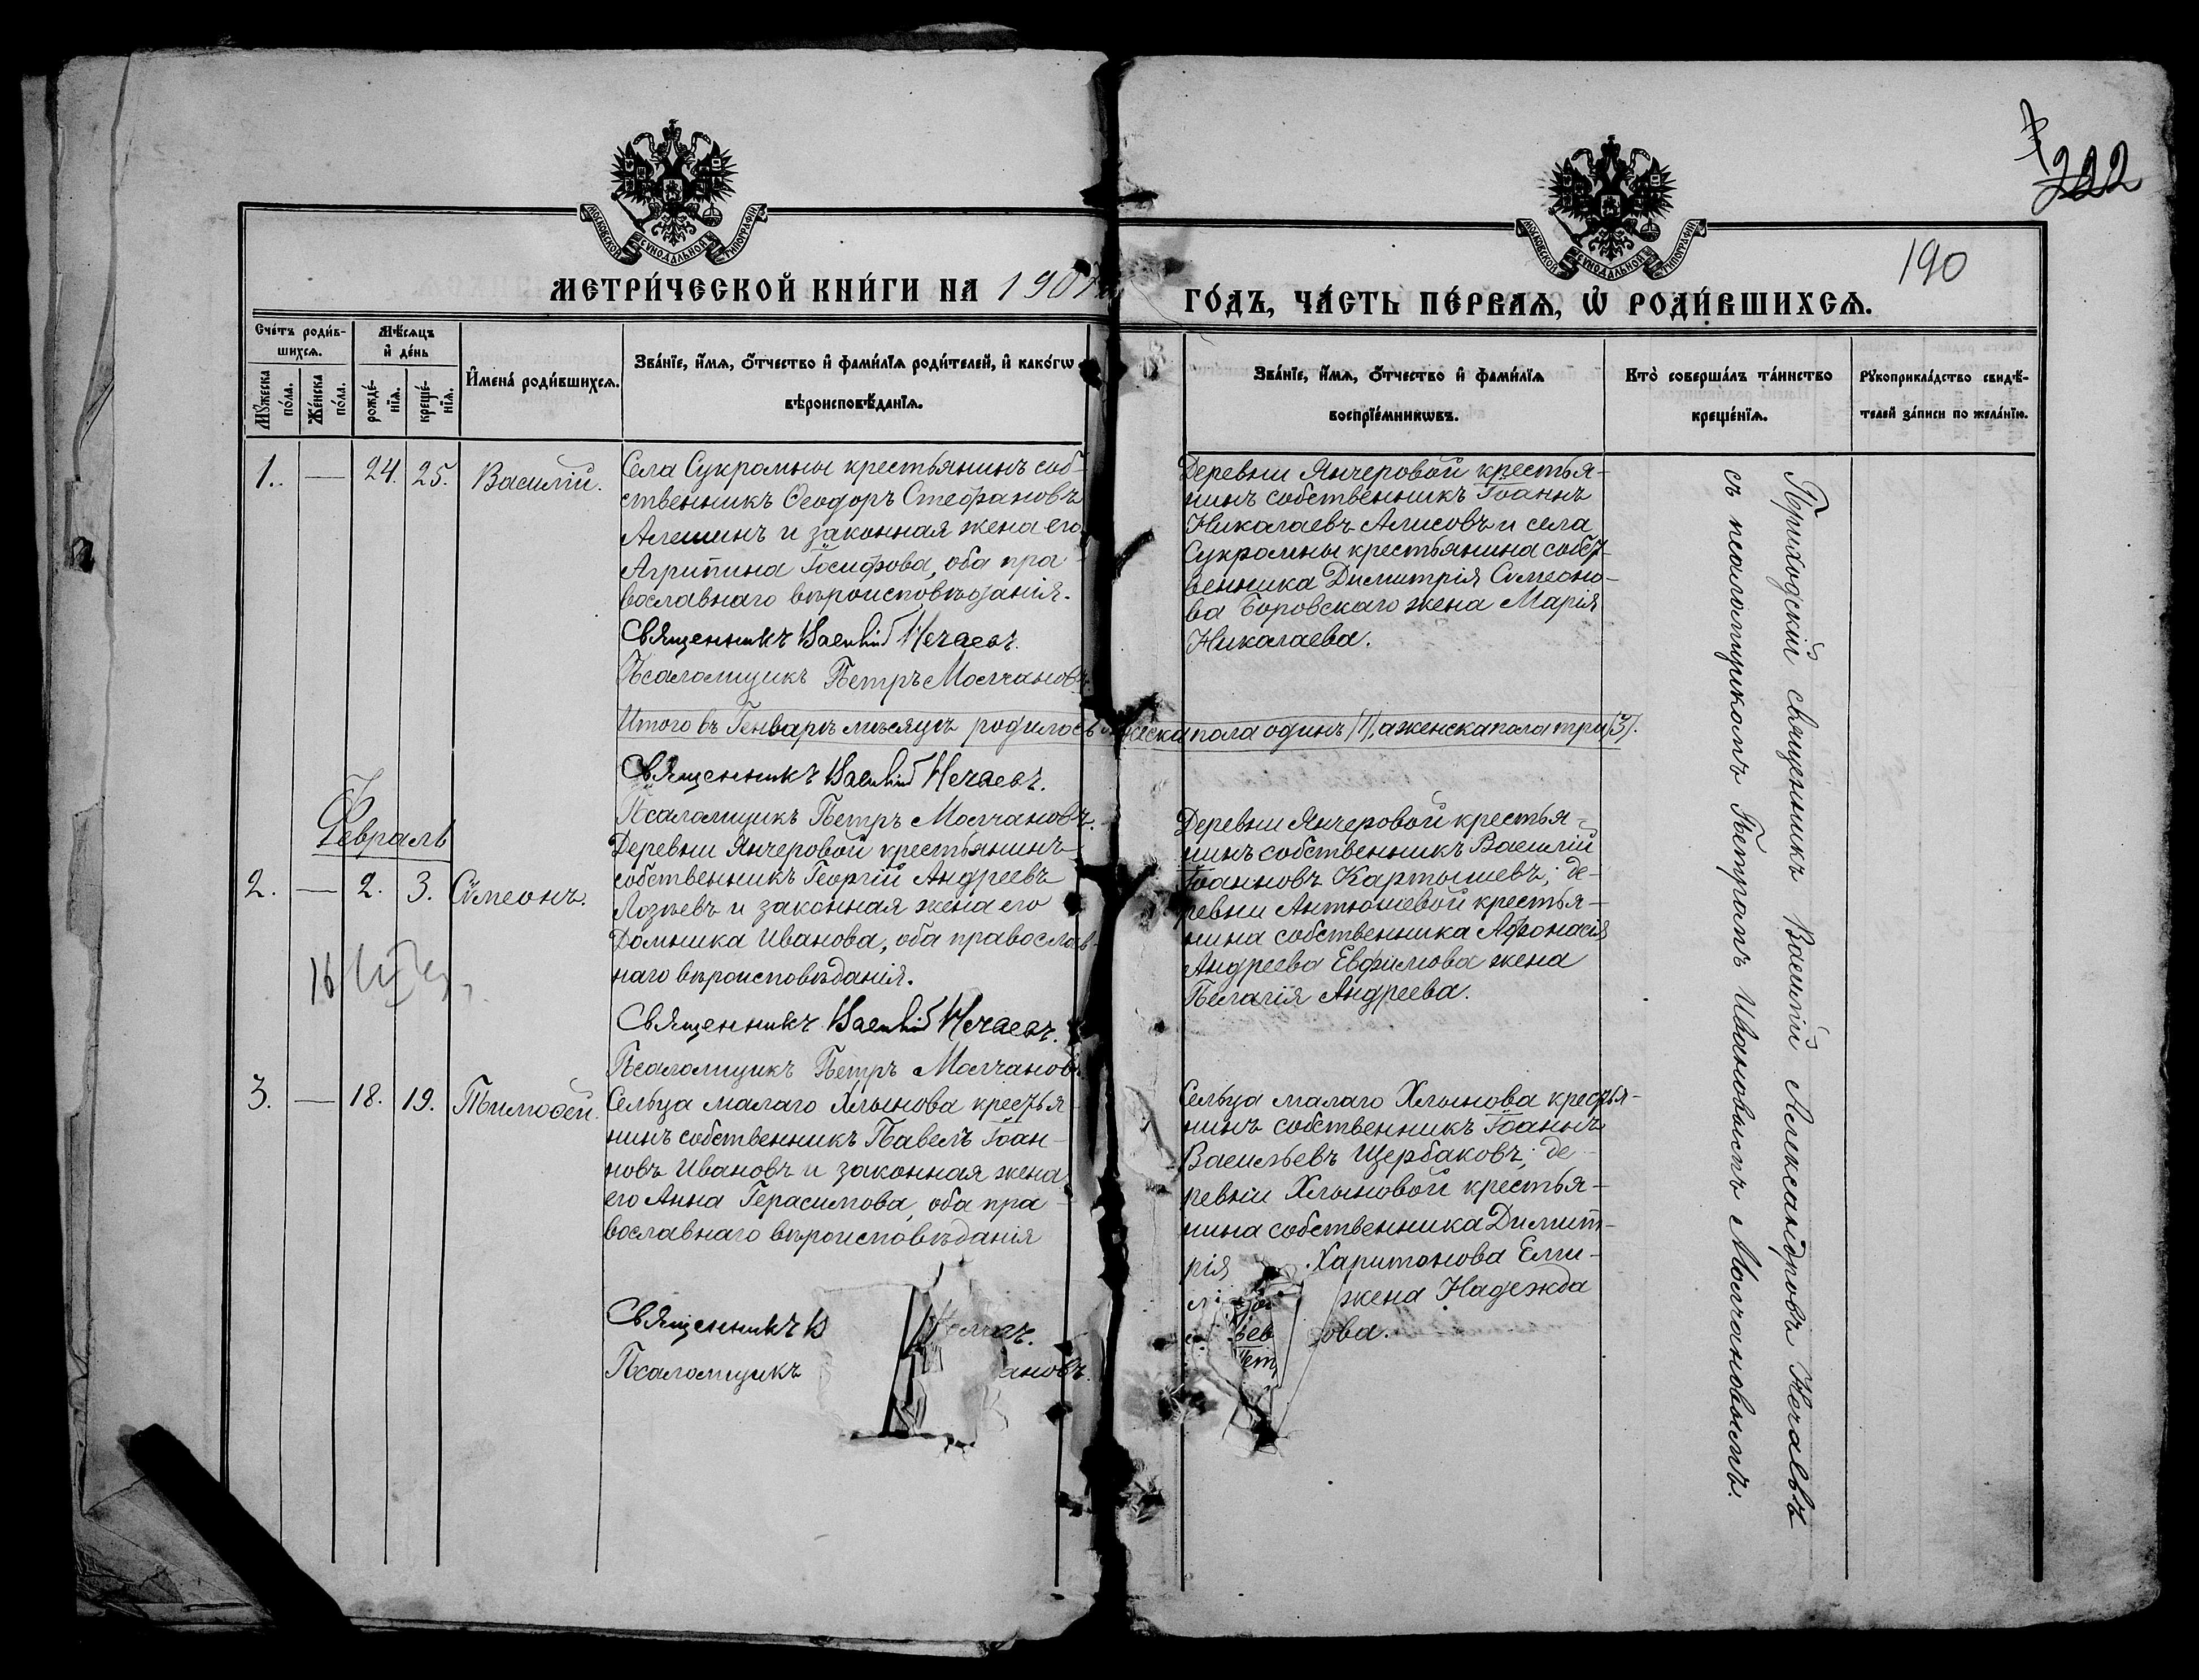 222
190
МОСКОВСКОЙ СѴНОДАЛЬНОЙ ТИПОГРАФІИ
МОСКОВСКОЙ СѴНОДАЛЬНОЙ ТИПОГРАФІИ
МЕТРИ́ЧЕСКОЙ КНИ́ГИ НА 190
ГО́ДЪ, ЧА́СТЬ ПЕ́РВАЯ, Ѡ РОДИ́ВШИХСЯ.
Сче́тъ роди́в-
шихся.
Мꙋ́жеска
по́ла.
Же́нска
по́ла.
Мѣ́сяцъ
и҆ де́нь
рожде́-
нїя.
креще́-
нїя.
И҆мена̀ роди́вшихся.
Зва́нїе, и҆́мя, ѻ҆́тчество и҆ фами́лїя роди́телей, и҆ како́гѡ
вѣроисповѣ́данїя.
Зва́нїе, и҆́мя, ѻ҆́тчество и҆ фами́лїя
воспрїе́мникѡвъ.
Кто̀ соверша́лъ та́инство
креще́нїя.
Рꙋкоприкла́дство свидѣ́-
телей за́писи по жела́нїю.
1. — 24. 25. Василій.
Села Сукромны крестьянинъ соб-
ственникъ Ѳеодоръ Стефановъ
Алешинъ и законная жена его
Агрипина Іосифова, оба пра-
вославнаго вѣроисповѣданія.
Священникъ Василій Нечаевъ.
Псаломщикъ Петръ Молчановъ
Деревни Янчеровой крестья-
нинъ собственникъ Іоаннъ
Николаевъ Алисовъ и села
Сукромны крестьянина собст-
венника Димитрія Симеоно-
ва Боровскаго жена Марія
Николаева.
Итого въ Генварѣ мѣсяцѣ родилось мужеска пола одинъ (1), а женска пола три (3).
Священникъ Василій Нечаевъ.
Псаломщикъ Петръ Молчановъ.
Февраль
2. — 2. 3. Сѵмеонъ.
Деревни Янчеровой крестьянинъ
собственникъ Георгій Андреевъ
Лозѣевъ и законная жена его
Домника Иванова, оба православ-
наго вѣроисповѣданія.
Священникъ Василій Нечаевъ.
Псаломщикъ Петръ Молчановъ
16
Деревни Янчеровой крестья-
нинъ собственникъ Василій
Іоанновъ Картышевъ; де-
ревни Антюшевой крестья-
нина собственника Афонасія
Андреева Евфимова жена
Пелагія Андреева.
3. — 18. 19. Тимоѳей.
Сельца малаго Хлынова крестья-
нинъ собственникъ Павелъ Іоан-
новъ Ивановъ и законная жена
его Анна Герасимова, оба пра-
вославнаго вѣроисповѣданія
Священникъ В
Псаломщикъ ановъ.
Сельца малаго Хлынова крестья-
нинъ собственникъ Іоаннъ
Васильевъ Щербаковъ; де-
ревни Хлыновой крестья-
нина собственника Димит-
рія Харитонова Ели-
жена Надежда
ова.
Приходскій священникъ Василій Александровъ Нечаевъ
съ псаломщикомъ Петромъ Ивановымъ Молчановымъ.